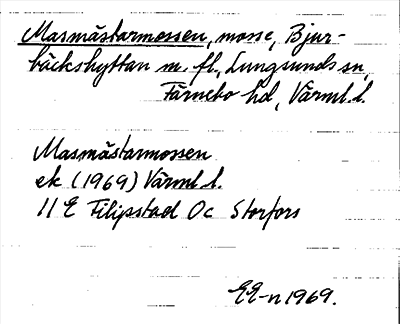 Masmästarmossen, mosse, Bjur-
bäckshyttan m. fl., Lungsunds sn,
Färnebo hd, Värml. l.
Masmästarmossen
ek (1969) Värml. l.
11 E Filipstad Oc Storfors
EE-n 1969.